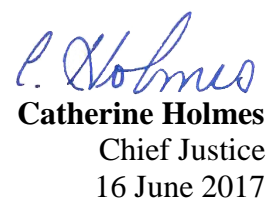 C. Holmes
Catherine Holmes
Chief Justice
16 June 2017